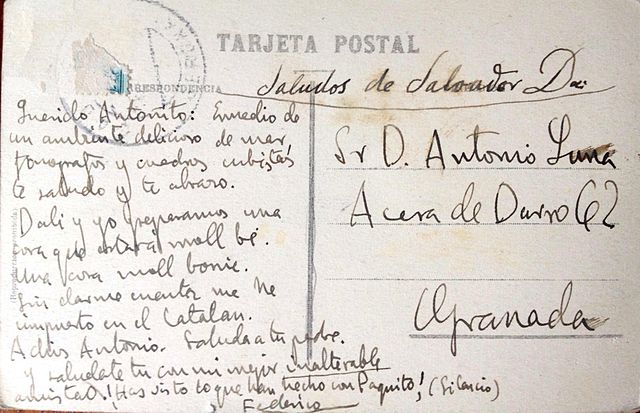 TARJETA POSTAL
CORRESPONDENCIA
Saludos de Salvador Dalí
Querido Antonito: Enmedio de
un ambiente delicioso de mar,
fonografos y cuadros cubistas
te saludo y te abrazo.
Dalí y yo preparamos una
cosa que estará moll bé.
Una cosa moll bonic.
Sin darme cuenta me he
impuesto en el Catalan.
Adios Antonio. Saluda a tu padre.
y saludate tu con mi mejor inalterable
amistad. ¡Has visto lo que han hecho con Paquito! (Silencio)
Federico
Sr D. Antonio Luna
Acera de Darro 62
Granada